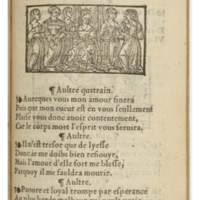 ¶ Aultre quatrain.
Auecques vous mon amour finera
Puis que mon cueur est en vous seullement
Plaise vous donc auoir contentement,
Car le corps mort l'esprit vous seruira.
¶ Aultre.
Il n'est tresor que de lyesse
Donc ie me doibs bien resiouyr,
Mais l'amour d'elle fort me blesse,
Parquoy il me fauldra mourir.
¶ Aultre.
Pauure et loyal trompe par esperance